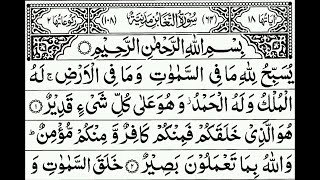 اٰیَاتُهَا ۱۸ (۶۴) سُوْرَةُ التَّغَابُنِ مَدَنِيَّةٌ (۱۰۸) رُكُوْعَاتُهَا ۲
بِسْمِ اللّٰهِ الرَّحْمٰنِ الرَّحِيْمِ
يُسَبِّحُ لِلّٰهِ مَا فِى السَّمٰوٰتِ وَمَا فِى الْاَرْضِ ۚ لَهُ
الْمُلْكُ وَلَهُ الْحَمْدُ ۫ وَهُوَ عَلٰى كُلِّ شَىْءٍ قَدِيْرٌ ۝۱
هُوَ الَّذِىْ خَلَقَكُمْ فَمِنْكُمْ كَافِرٌ وَّ مِنْكُمْ مُّؤْمِنٌ ؕ
وَاللّٰهُ بِمَا تَعْمَلُوْنَ بَصِيْرٌ ۝۲ خَلَقَ السَّمٰوٰتِ وَ